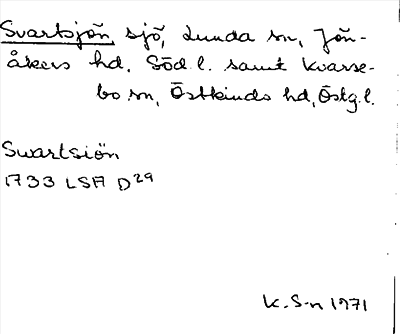 Svartsjön, sjö, Lunda sn, Jön-
åkers hd. Söd.l. samt Kvarse-
bo sn, Östkinds hd, Östg.l.
Swartsiön
1733 LSA D29
K.S-n 1971